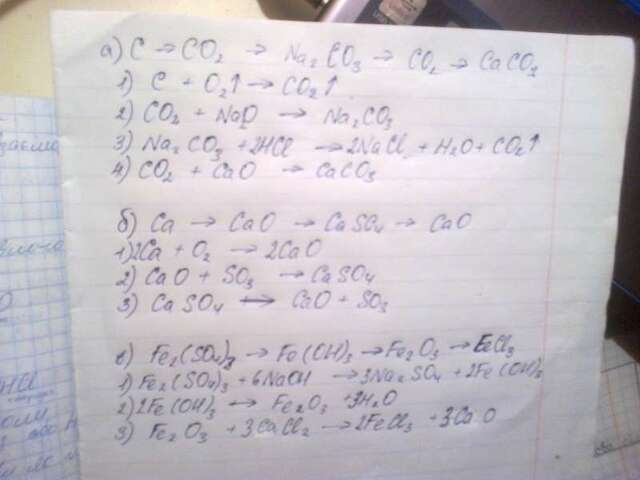 а) C → CO₂ → Na₂CO₃ → CO₂ → CaCO₃
1) C + O₂↑ → CO₂↑
2) CO₂ + NaO → Na₂CO₃
3) Na₂CO₃ + 2HCl → 2NaCl + H₂O + CO₂↑
4) CO₂ + CaO → CaCO₃
б) Ca → CaO → CaSO₄ → CaO
1) 2Ca + O₂ → 2CaO
2) CaO + SO₃ → CaSO₄
3) CaSO₄ ⟷ CaO + SO₃
в) Fe₂(SO₄)₃ → Fe(OH)₃ → Fe₂O₃ → FeCl₃
1) Fe₂(SO₄)₃ + 6NaOH → 3Na₂SO₄ + 2Fe(OH)₃
2) 2Fe(OH)₃ ⟷ Fe₂O₃ + 3H₂O
3) Fe₂O₃ + 3CaCl₂ → 2FeCl₃ + 3CaO